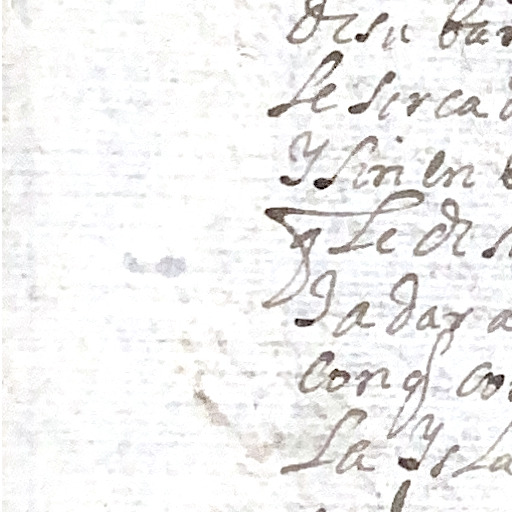 de su bar
se serca d
y sin en
q le de s
da dar a
con q con
la ysla